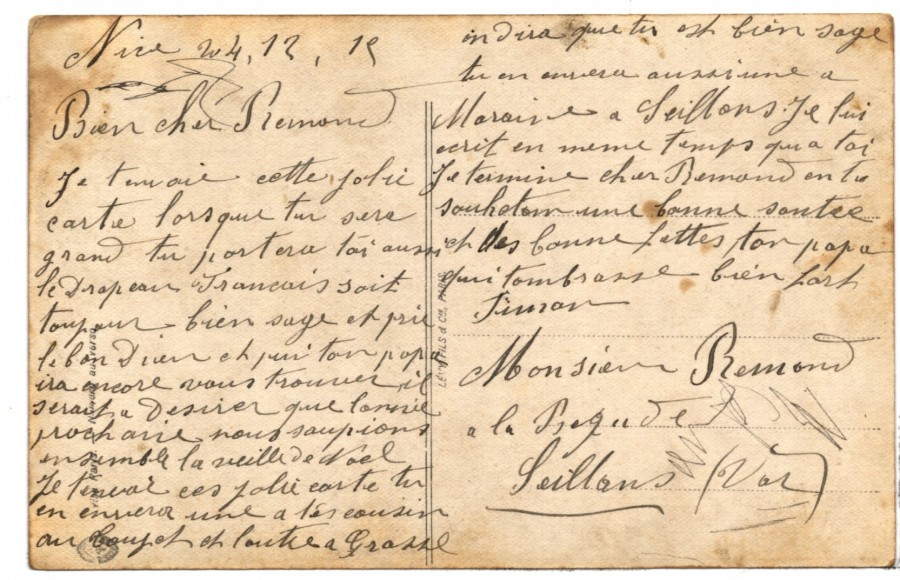 Nice 24, 12, 15
Bien cher Remond
Je tenvoie cette jolie
carte lorsque tu sera
grand tu portera toi aussi
le Drapeau Francais soit
toujour bien sage et prie
le bon Dieu et puis ton papa
ira encore vous trouver il
serait a Desirer que lannee
prochaine nous soupions
ensemble la veille de Noel
Je tenvoi ces jolie carte tu
en envera une a tes cousin
au et lautre a Grasse
on dira que tu est bien sage
tu en envera aussi une a
Maraine a Seillans. Je lui
ecrit en meme temps qua toi
Je termine cher Remond en te
souhetan une bonne santee
et des bonne fettes ton papa
qui tembrasse bien fort
Simon
LEVY FILS & Cie, PARIS
Monsieur Remond
a la
Seillans (Var)